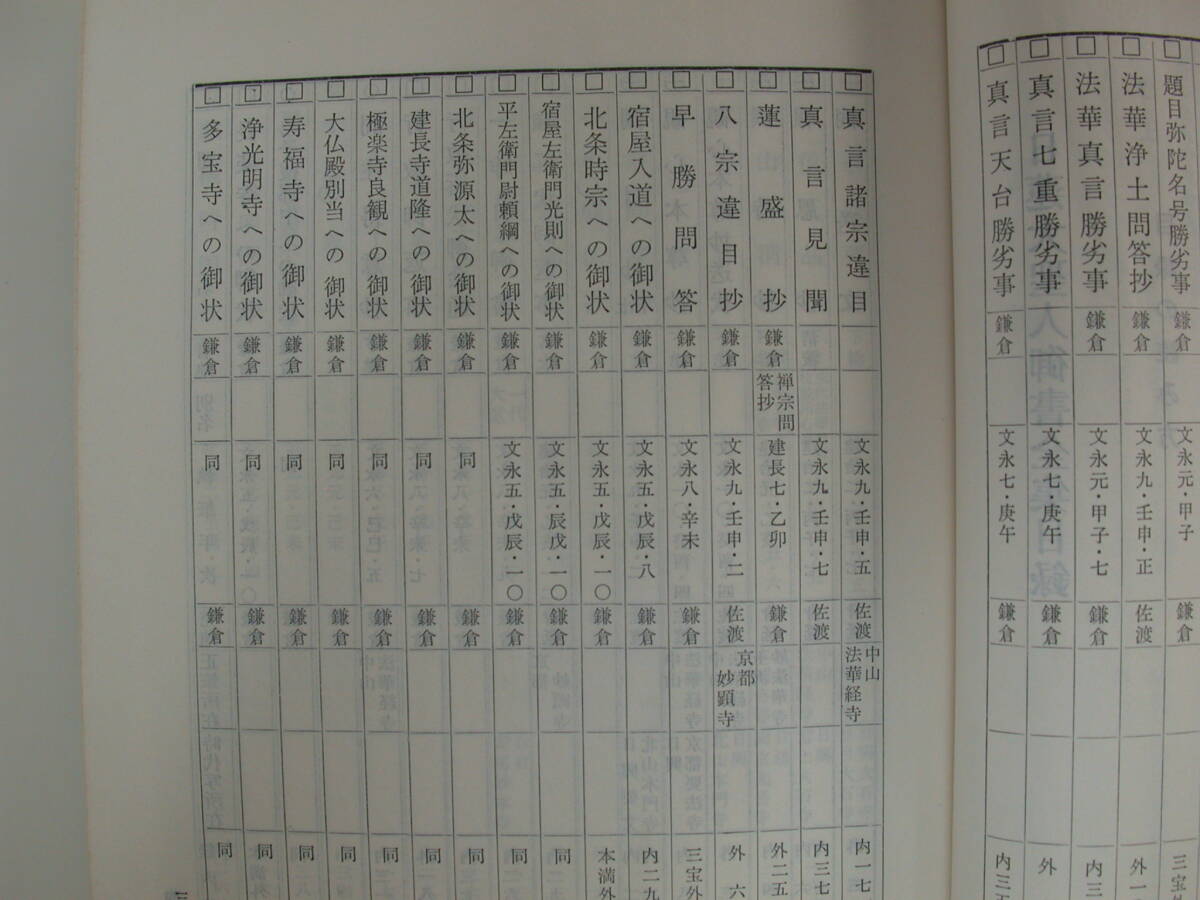 題目弥陀名号勝劣事 鎌倉 文永元・甲子 鎌倉 三宝外
法華浄土問答抄 鎌倉 文永九・壬申・正 佐渡 外一
法華真言勝劣事 鎌倉 文永元・甲子・七 鎌倉 内三
真言七重勝劣事 鎌倉 文永七・庚午 鎌倉 外
真言天台勝劣事 鎌倉 文永七・庚午 鎌倉 内三五
真言諸宗違目 文永九・壬申・五 佐渡 中山法華経寺 内一七
真言見聞 文永九・壬申・七 佐渡 内三七
蓮盛抄 鎌倉 禅宗問答抄 建長七・乙卯 鎌倉 外二五
八宗違目抄 鎌倉 文永九・壬申・二 佐渡 京都妙顕寺 外六
早勝問答 鎌倉 文永八・辛未 鎌倉 三宝外
宿屋入道への御状 鎌倉 文永五・戊辰・八 鎌倉 内二九
北条時宗への御状 鎌倉 文永五・戊辰・一〇 鎌倉 本満外
宿屋左衛門光則への御状 鎌倉 文永五・辰戊・一〇 鎌倉 同
平左衛門尉頼綱への御状 鎌倉 文永五・戊辰・一〇 鎌倉 同
北条弥源太への御状 鎌倉 同 鎌倉 同
建長寺道隆への御状 鎌倉 同 鎌倉 同
極楽寺良観への御状 鎌倉 同 鎌倉 同
大仏殿別当への御状 鎌倉 同 鎌倉 同
寿福寺への御状 鎌倉 同 鎌倉 同
浄光明寺への御状 鎌倉 同 鎌倉 同
多宝寺への御状 鎌倉 同 鎌倉 同